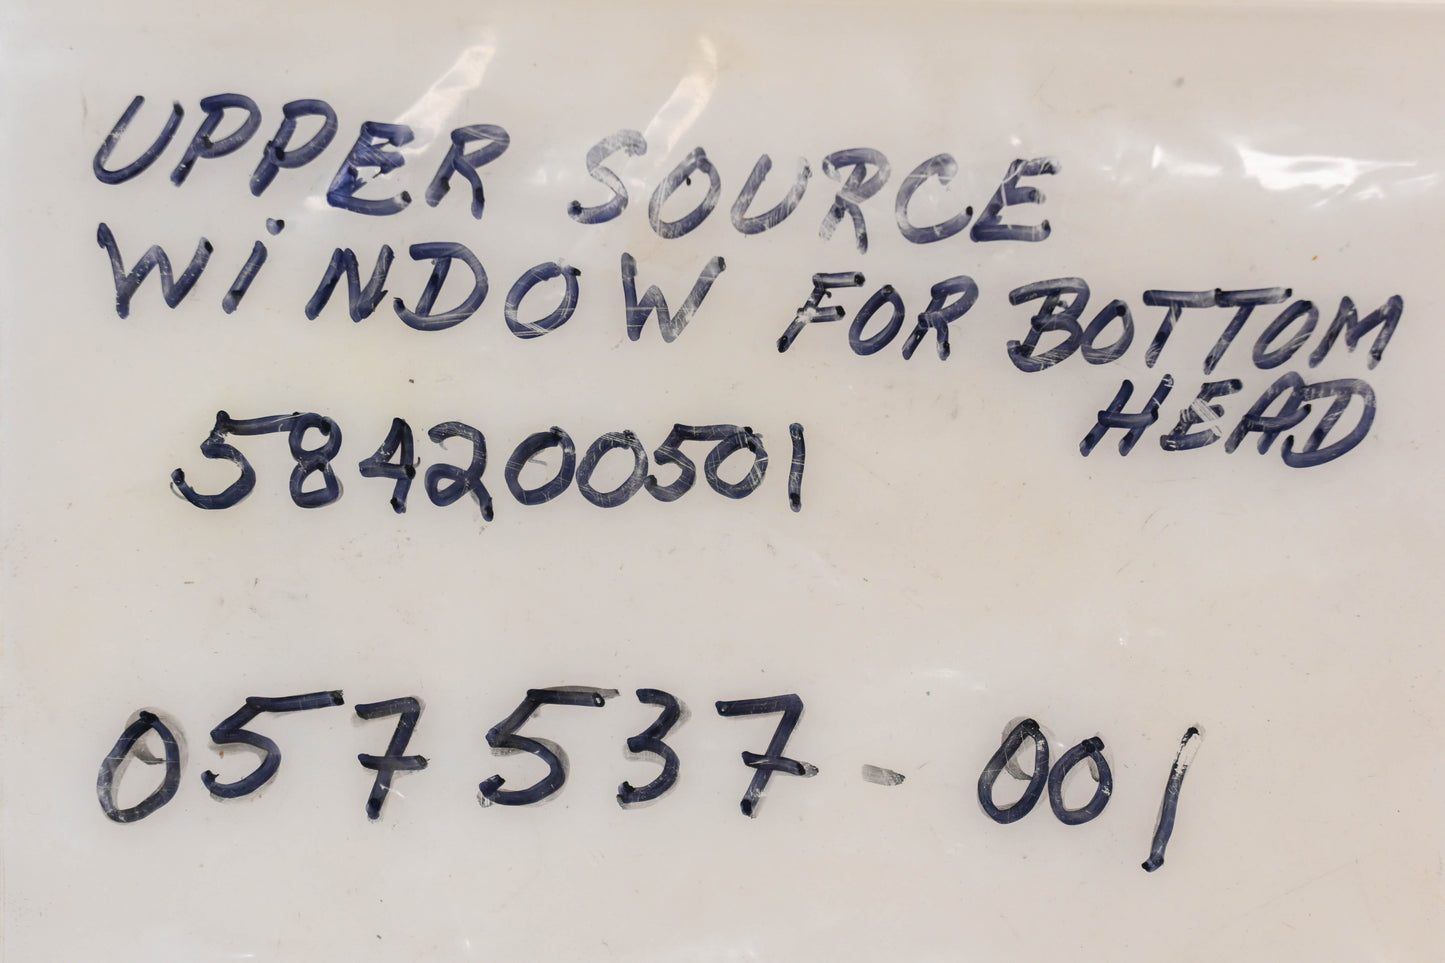 UPPER SOURCE
WiNDOW FOR BOTTOM
HEAD
584200501
057537-001